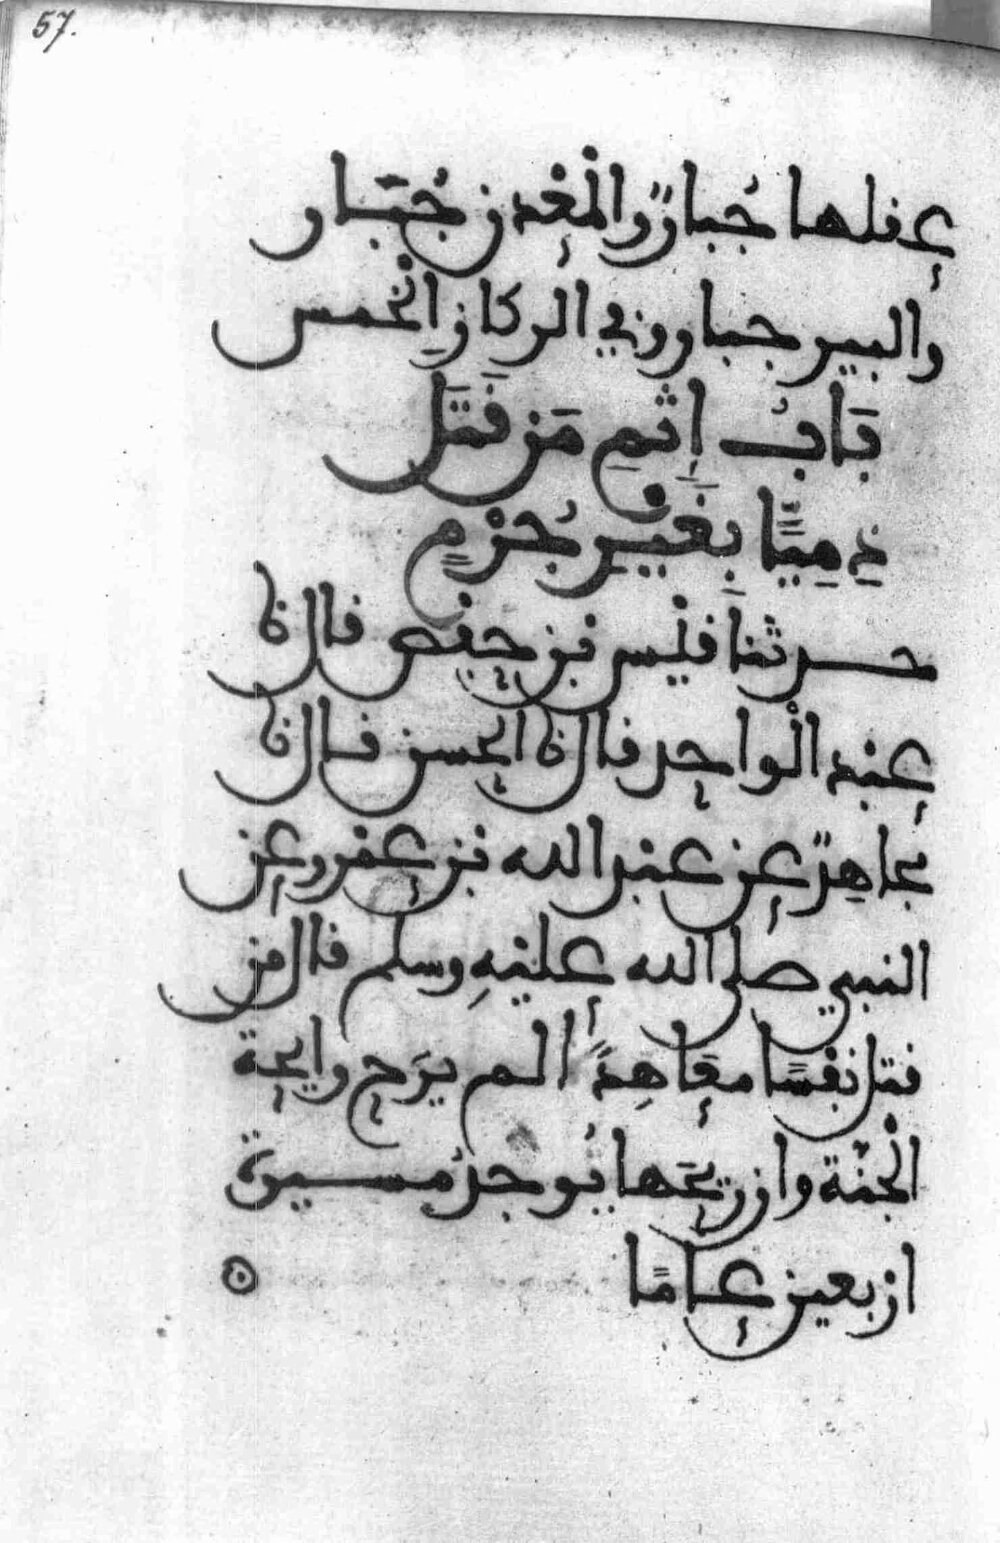 57.
عقلها جُبارٌ والمَعْدن جُبَار
والبير جبار وفي الركازِ اِلْخمس
بَابُ إِثمِ مَن قَتَلَ
ذِمِيًّا بِغَيْرِ جُرْمٍ
حدثنا قيس بن حفص قال نا
عبد الْواحد قال نا الحسن قال نا
مجاهدٌ عن عبد الله بن عمرو عن
النبي صلى الله عليهِ وسلم قال من
قتل نفسًا معَاهِدًا لم يَرَح رايحة
الْجنة وان ريحَها يُوجدُ مسيرة
اربعين عامًا